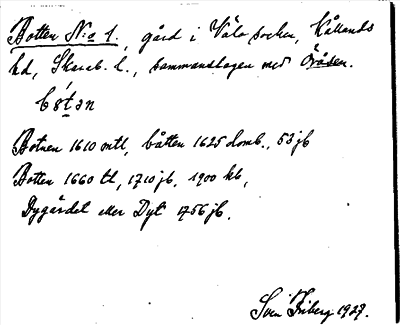 Botten N:o 1., gård i Väla socken, Kållands
hd, Skarab. l., sammanslagen med Öråsen.
bǿtǝn
Botnen 1610 mtl, båtten 1625 domb., 53 jb
Botten 1660 tl, 1710 jb, 1900 kb,
Dygärdet eller Dyt 1756 jb.
Sven Friberg 1927.